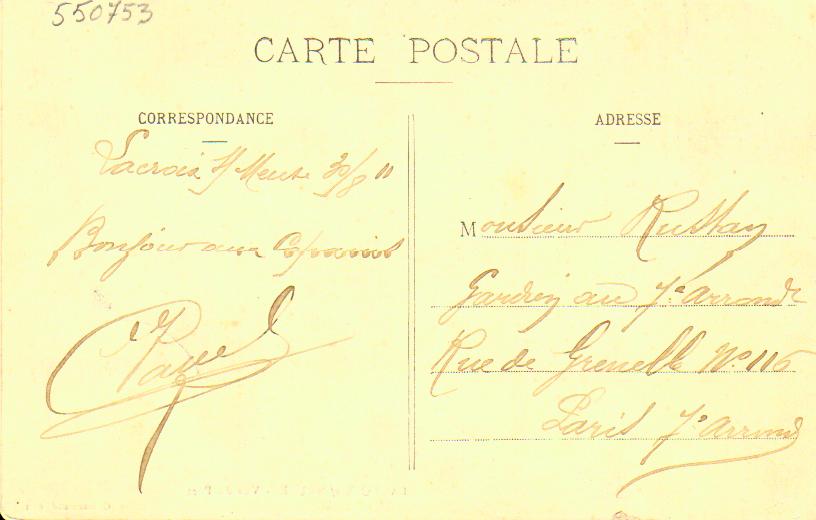 550753
CARTE POSTALE
CORRESPONDANCE
Lacroix s/ Meuse 30/8 11
Bonjour aux Copains
ADRESSE
Monsieur Rustan
au 7e Arrondt
Rue de Grenelle No. 116
Paris 7e Arrond